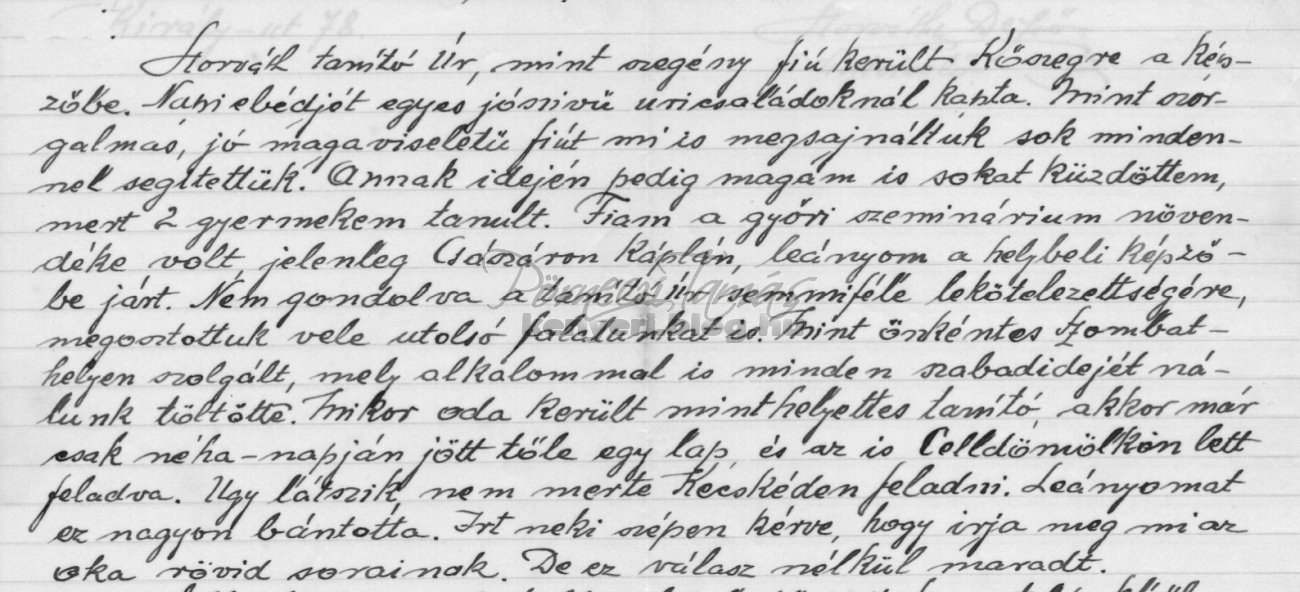 Király-ut 78.
Horváth tanitó Úr, mint szegény fiú került Kőszegre a kép-
zőbe. Napi ebédjét egyes jószivü uricsaládoknál kapta. Mint szor-
galmas, jó magaviseletü fiút mi is megsajnáltuk sok minden-
nel segitettük. Annak idején pedig magam is sokat küzdöttem,
mert 2 gyermekem tanult. Fiam a győri szeminárium növen-
déke volt, jelenleg Császáron káplán, leányom a helybeli képző-
be járt. Nem gondolva a tanitó úr semmiféle lekötelezettségére,
megosztottuk vele utolsó falatunkat is. Mint önkéntes Szombat-
helyen szolgált, mely alkalommal is minden szabadidejét ná-
lunk töltötte. Mikor oda került mint helyettes tanitó, akkor már
csak néha-napján jött tőle egy lap, és az is Celldömölkön lett
feladva. Ugy látszik, nem merte Kecskéden feladni. Leányomat
ez nagyon bántotta. Irt neki szépen kérve, hogy irja meg mi az
oka rövid sorainak. De ez válasz nélkül maradt.